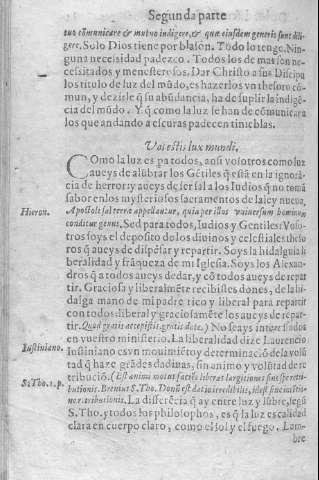 Segunda parte
tur cõmunicare & mutuo indigere, & quæ eiusdem generis sunt dili-
gere. Solo Dios tiene por blasón. Todo lo tengo. Nin-
guna necesidad padezco. Todos los demas son ne-
cessitados y menesterosos. Dar Christo a sus Discipu
los titulo de luz del mũdo, es hazerlos vn thesoro co-
mun, y dezirle q̃ su abũdancia, ha de suplir la indigẽ-
cia del mũdo. Y q̃ como la luz se han de comunicar a
los que andando a escuras padecen tinieblas.
Vos estis lux mundi.
Como la luz es pa todos, ansi vosotros como luz
aueys de alũbrar los Gẽtiles q̃ està en la ignorã-
cia de herror: y aueys de ser sal a los Iudios q̃ no tomã
sabor en los mysteriosos sacramentos de la ley nueua,
Hieron.
Apostoli sal terræ appellantur, quia per illos vniuersum hominum
conditur genus. Sed para todos, Iudios y Gentiles: Voso-
tros soys el deposito de los diuinos y celestiales theso
ros q̃ aueys de dispẽsar y repartir. Soys la hidalguia li
beralidad y frãqueza de mi Iglesia. Soys los Alexan-
dros q̃ a todos aueys de dar, y cõ todos aueys de repar
tir. Graciosa y liberalmẽte recibistes dones, de la hi-
dalga mano de mi padre rico y liberal para repartir
con todos: liberal y graciosamẽte los aueys de repar-
tir. Quod gratis accepistis, gratis date.) No seays interessados
en vuestro ministerio. La liberalidad dize Laurencio
Iustiniano.
Iustiniano es vn mouimiẽto y determinaciõ de la volũ
tad q̃ haze grãdes dadiuas, sin animo y volũtad de re
tribuciõ. (Est animi motus faciẽs liberas largitiones sine spe retri-
S. Tho. 1. p.
butionis. S. Tho. Donũ est datio irredibilis, id est sine intẽtio-
ne retributionis. La differẽcia q̃ ay entre luz y lũbre, segũ
S. Tho. y todos los philosophos, es q̃ la luz es calidad
clara en cuerpo claro, como el sol y el fuego. Lum-
bre